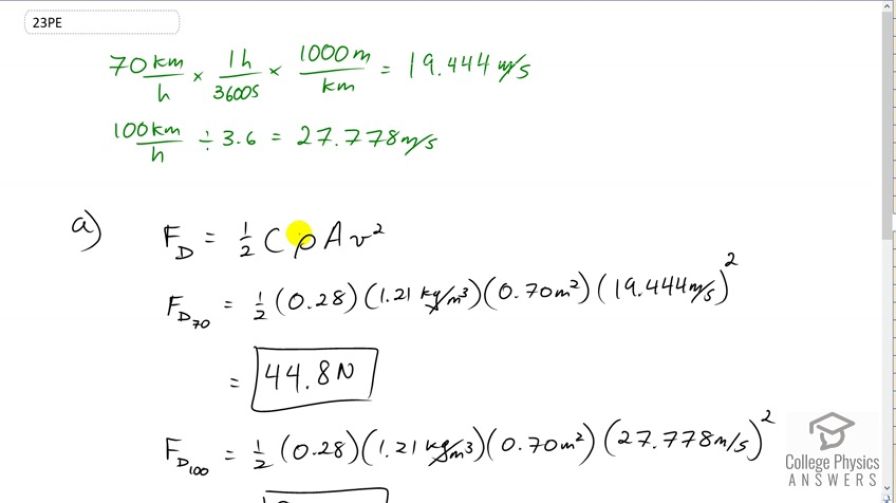 23PE
70 km/h × 1h/3600s × 1000m/km = 19.444 m/s
100 km/h ÷ 3.6 = 27.778 m/s
a) F_D = 1/2 C ρ A v²
F_D70 = 1/2 (0.28)(1.21 kg/m³)(0.70m²)(19.444 m/s)²
= 44.8 N
F_D100 = 1/2 (0.28)(1.21 kg/m³)(0.70m²)(27.778 m/s)²
College Physics
ANSWERS